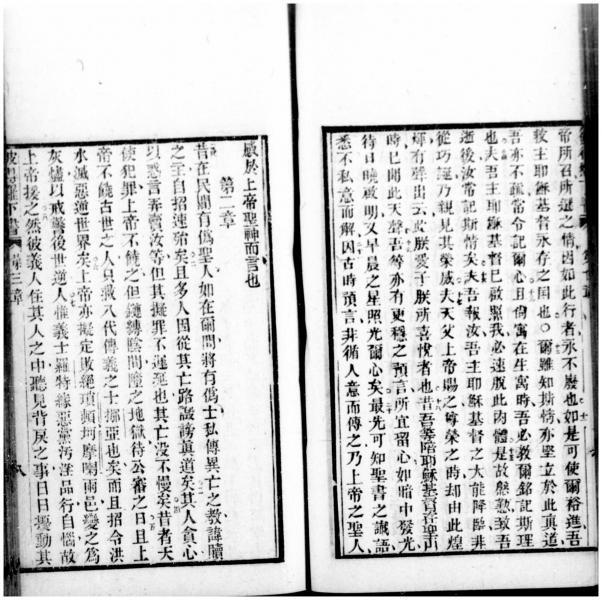 帝所召所選之情因如此行者永不廢也如是可使爾裕進吾
救主耶穌基督永存之国也○爾雖知斯情亦堅立於此真道
吾亦不疏常令記爾心且倘寓在生寓時吾必教爾銘記斯理
也夫吾主耶穌基督已啟照我必速脫此肉體是故慇懃吾
逝後汝常記斯情矣夫吾報汝吾主耶穌基督之大能降臨非
從巧誣乃親見其榮威夫天父上帝賜之尊榮之時却由此煌
輝有聲出云此朕愛子朕所喜悅者也昔吾等偕耶穌基督在聖山
時已聞此天聲吾等亦有更穩之預言所宜留心如暗中發光
待日曉啟明又早晨之星照光爾心矣最先可知聖書之讖語
悉不私意而解因古時預言非循人意而傳之乃上帝之聖人
感於上帝聖神而言也
第二章
昔在民間有偽聖人如在爾間將有偽士私傳異亡之教諱贖
之主自招速殆矣且多人因從其亡路譏謗真道矣其人貪心
以惑言弄賣汝等但其擬罪不遲延也其亡没不慢矣昔者天
使犯罪上帝不饒之但鏈陰間之地獄待公審之日且上
帝不饒古世之人只救八代傳義之士挪亞也矣而且招令洪
水滅惡逆世界矣上帝亦擬定敗絕瑣頓坷摩喇兩邑變之為
灰燼以戒警後世逆人惟義士羅特緣惡黨污淫品行自惱故
上帝援之然彼義人住其人之中聽見背戾之事日日擾動其
第二章